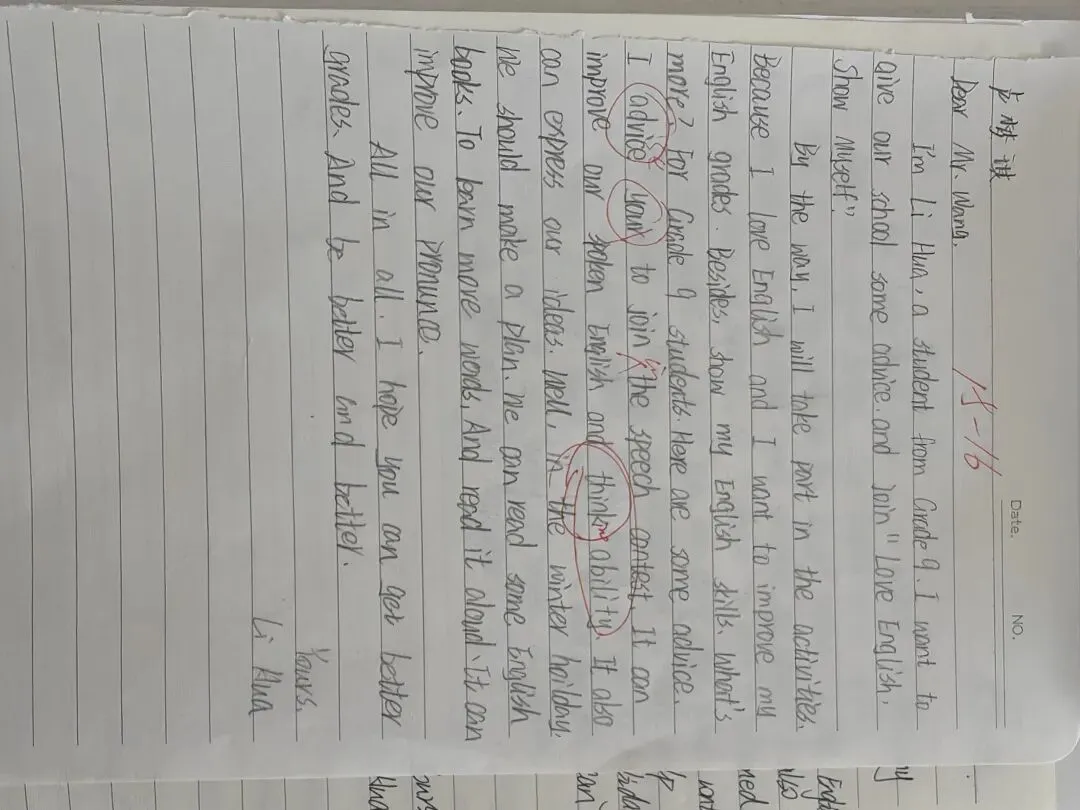 Date. NO.
Dear Mr. Wang,
15-16
I'm Li Hua, a student from Grade 9. I want to
give our school some advice. and join "Love English,
Show Myself".
By the way, I will take part in the activities.
Because I love English and I want to improve my
English grades. Besides, show my English skills. What's
more? For Grade 9 students. Here are some advice.
I advice your to join the speech contest. It can
improve our spoken English and thinking ability. It also
can express our ideas. Well, in the winter holiday.
We should make a plan. We can read some English
books. To learn more words. And read it aloud. It can
improve our pronunce.
All in all. I hope you can get better
grades. And be better and better.
Yours.
Li Hua